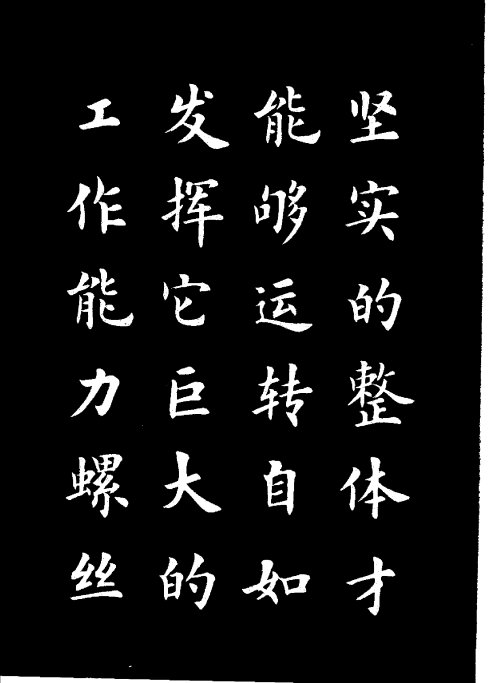 坚实的整体才
能够运转自如
发挥它巨大的
工作能力螺丝